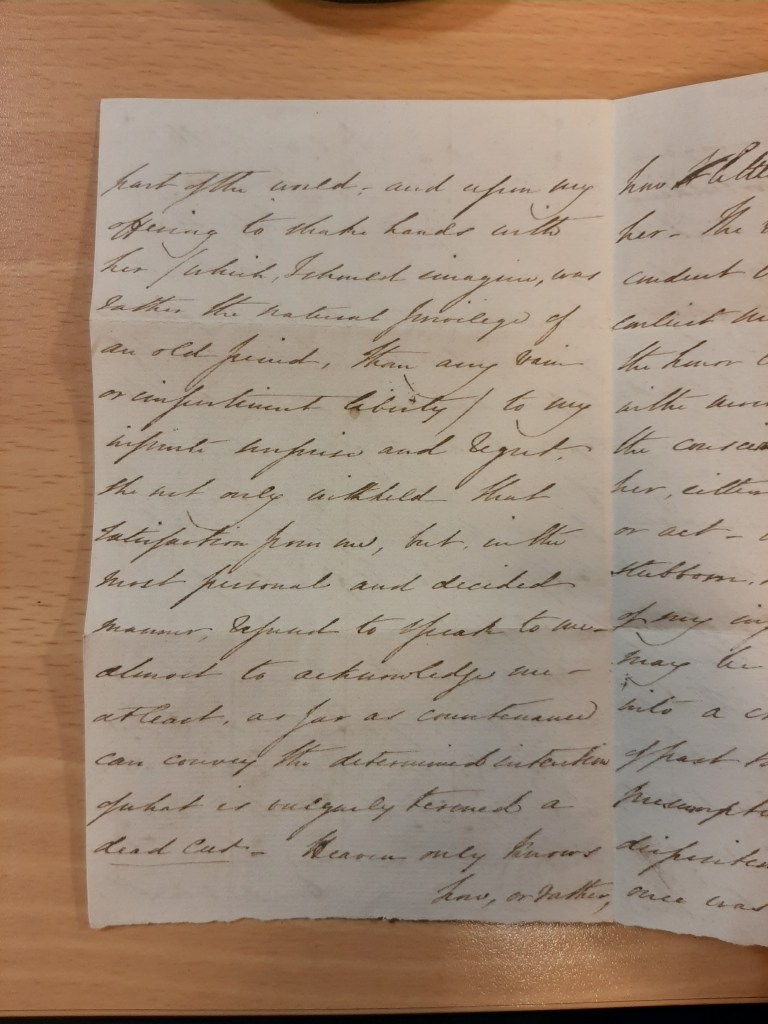 part of the world - and upon my
offering to shake hands with
her / which, I should imagine, was
rather the natural privilege of
an old friend, than any vain
or impertinent liberty / to my
infinite surprise and regret,
she not only withheld that
satisfaction from me, but, in the
most personal and decided
manner, refused to speak to me -
almost to acknowledge me -
at least, as far as countenance
can convey the determined intention
of what is vulgarly termed a
dead cut - Heaven only knows
how, or rather,
how
her - The
conduct
the honor
with the
the
her, either
or act -
stubborn,
of my
may be
into a
of past
once was